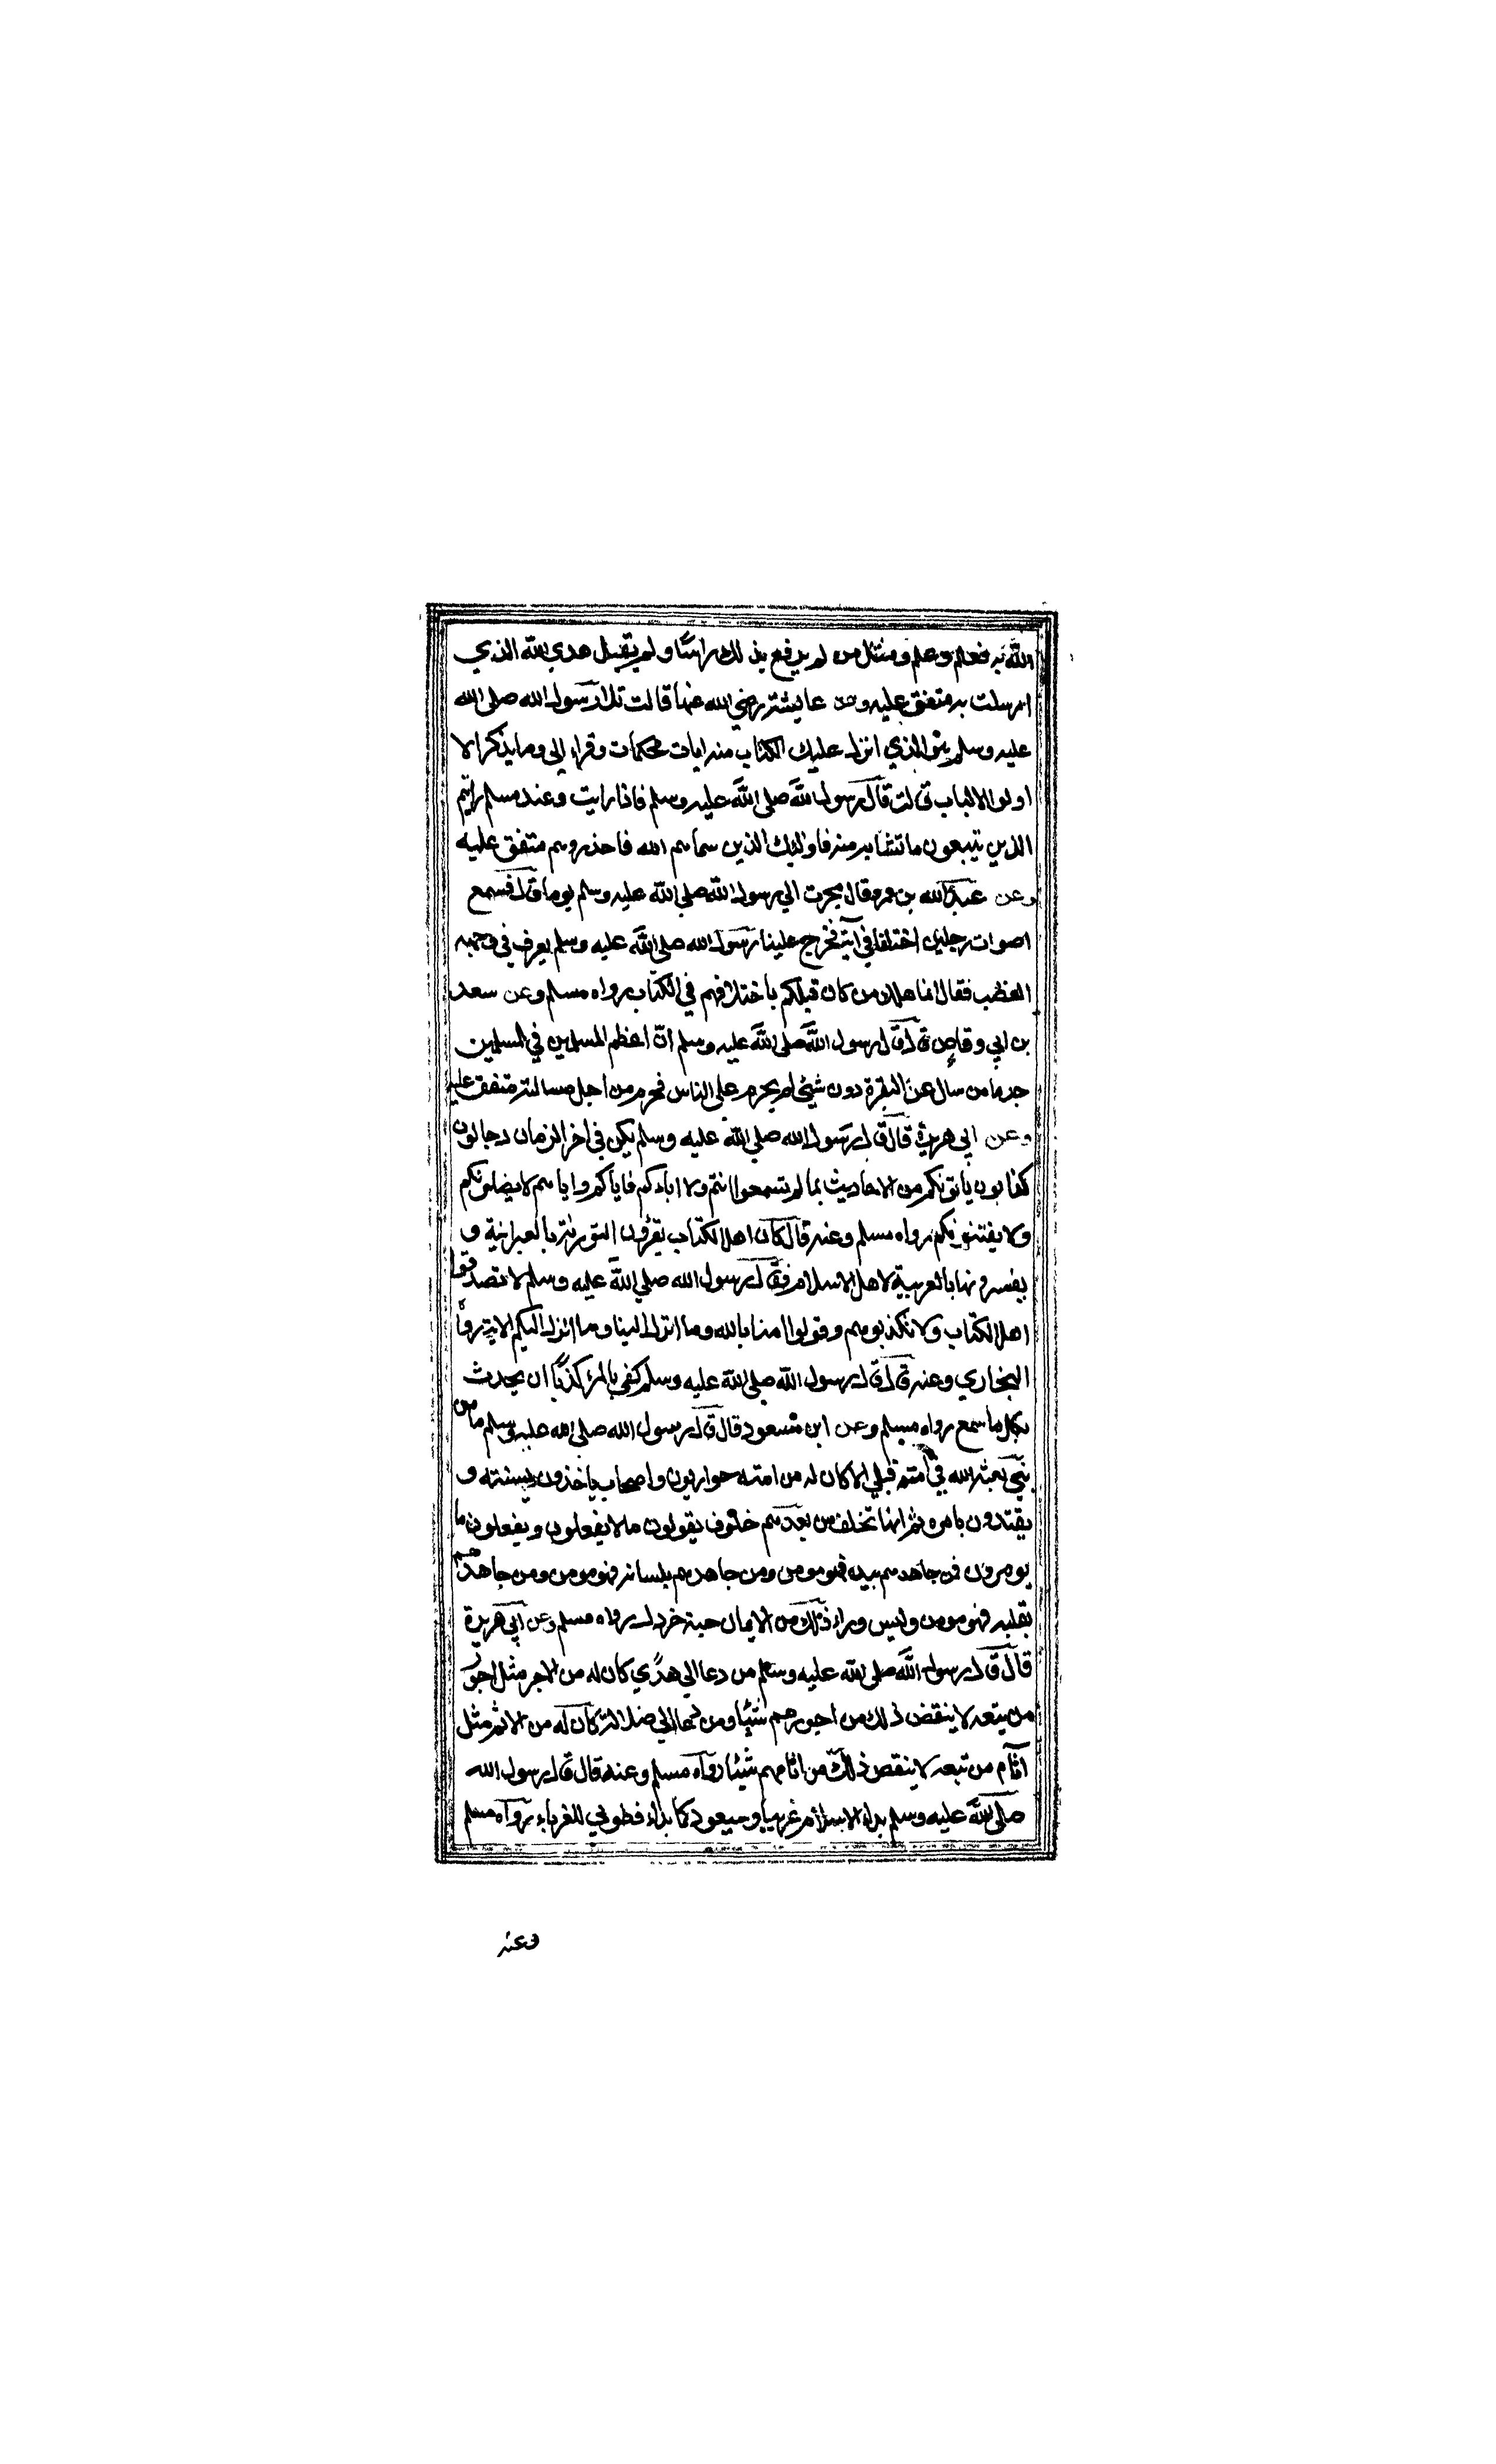 الله به فعلم وعلم ومثل من لم يرفع بذلك راسًا ولم يقبل هدي الله الذي
ارسلت به متفق عليه وعن عايشة رضي الله عنها قالت تلا رسول الله صلى الله
عليه وسلم هو الذي انزل عليك الكتاب منه ايات محكمات وقراء الى وما يذكر الا
اولوا الالباب قالت قال رسول الله صلى الله عليه وسلم فاذا رايت وعند مسلم رايتم
الذين يتبعون ما تشابه منه فاوليك الذين سماهم الله فاحذروهم متفق عليه
وعن عبد الله بن عمرو قال هجرت الي رسول الله صلي الله عليه وسلم يوما قال فسمع
اصوات رجلين اختلفا في آية فخرج علينا رسول الله صلى الله عليه وسلم يعرف في وجهه
الغضب فقال انما هلك من كان قبلكم باختلافهم في الكتاب رواه مسلم وعن سعد
بن ابي وقاص قال قال رسول الله صلى الله عليه وسلم انّ اعظم المسلمين في المسلمين
جرما من سال عن البقرة دون شيئ لم يحرم على الناس فحرم من اجل مسالته متفق عليه
وعن ابي هريرة قال قال رسول الله صلي الله عليه وسلم يكون في اخر الزمان دجالون
كذابون ياتونكم من الاحاديث بما لم تسمعوا انتم ولا اباءكم فاياكم واياهم لا يضلونكم
ولا يفتنونكم رواه مسلم وعنه قال كان اهل الكتاب يقرؤن التورىة بالعبرانية و
يفسرونها بالعربية لاهل الاسلام فقال رسول الله صلي الله عليه وسلم لا تصدقوا
اهل الكتاب ولا تكذبوهم وقولوا امنا بالله وما انزل الينا وما انزل اليكم الاية رواه
البخاري وعنه قال قال رسول الله صلي الله عليه وسلم كفي بالمرء كذبًا ان يحدث
بكل ما سمع رواه مسلم وعن ابن مسعود قال قال رسول الله صلى الله عليه وسلم ما من
نبيّ بعثه الله في امته قبلي الا كان له من امته حواريون واصحاب ياخذون بسنته و
يقتدون بامره ثم انها تخلف من بعدهم خلوف يقولون ما لا يفعلون ويفعلون ما
يومرون فمن جاهدهم بيده فهو مومن ومن جاهدهم بلسانه فهو مومن ومن جاهدهم
بقلبه فهو مومن وليس وراء ذلك من الايمان حبة خردل رواه مسلم وعن ابي هريرة
قال قال رسول الله صلى الله عليه وسلم من دعا الي هدًي كان له من الاجر مثل اجور
من تبعه لا ينقض ذلك من اجورهم شيئا ومن دعا الي ضلالة كان له من الاثم مثل
آثام من تبعه لا ينقص ذلك من اثامهم شيئا رواه مسلم وعنه قال قال رسول الله
صلى الله عليه وسلم بداء الاسلام غريبا وسيعود كما بداء فطوبي للغرباء رواه مسلم
وعنه